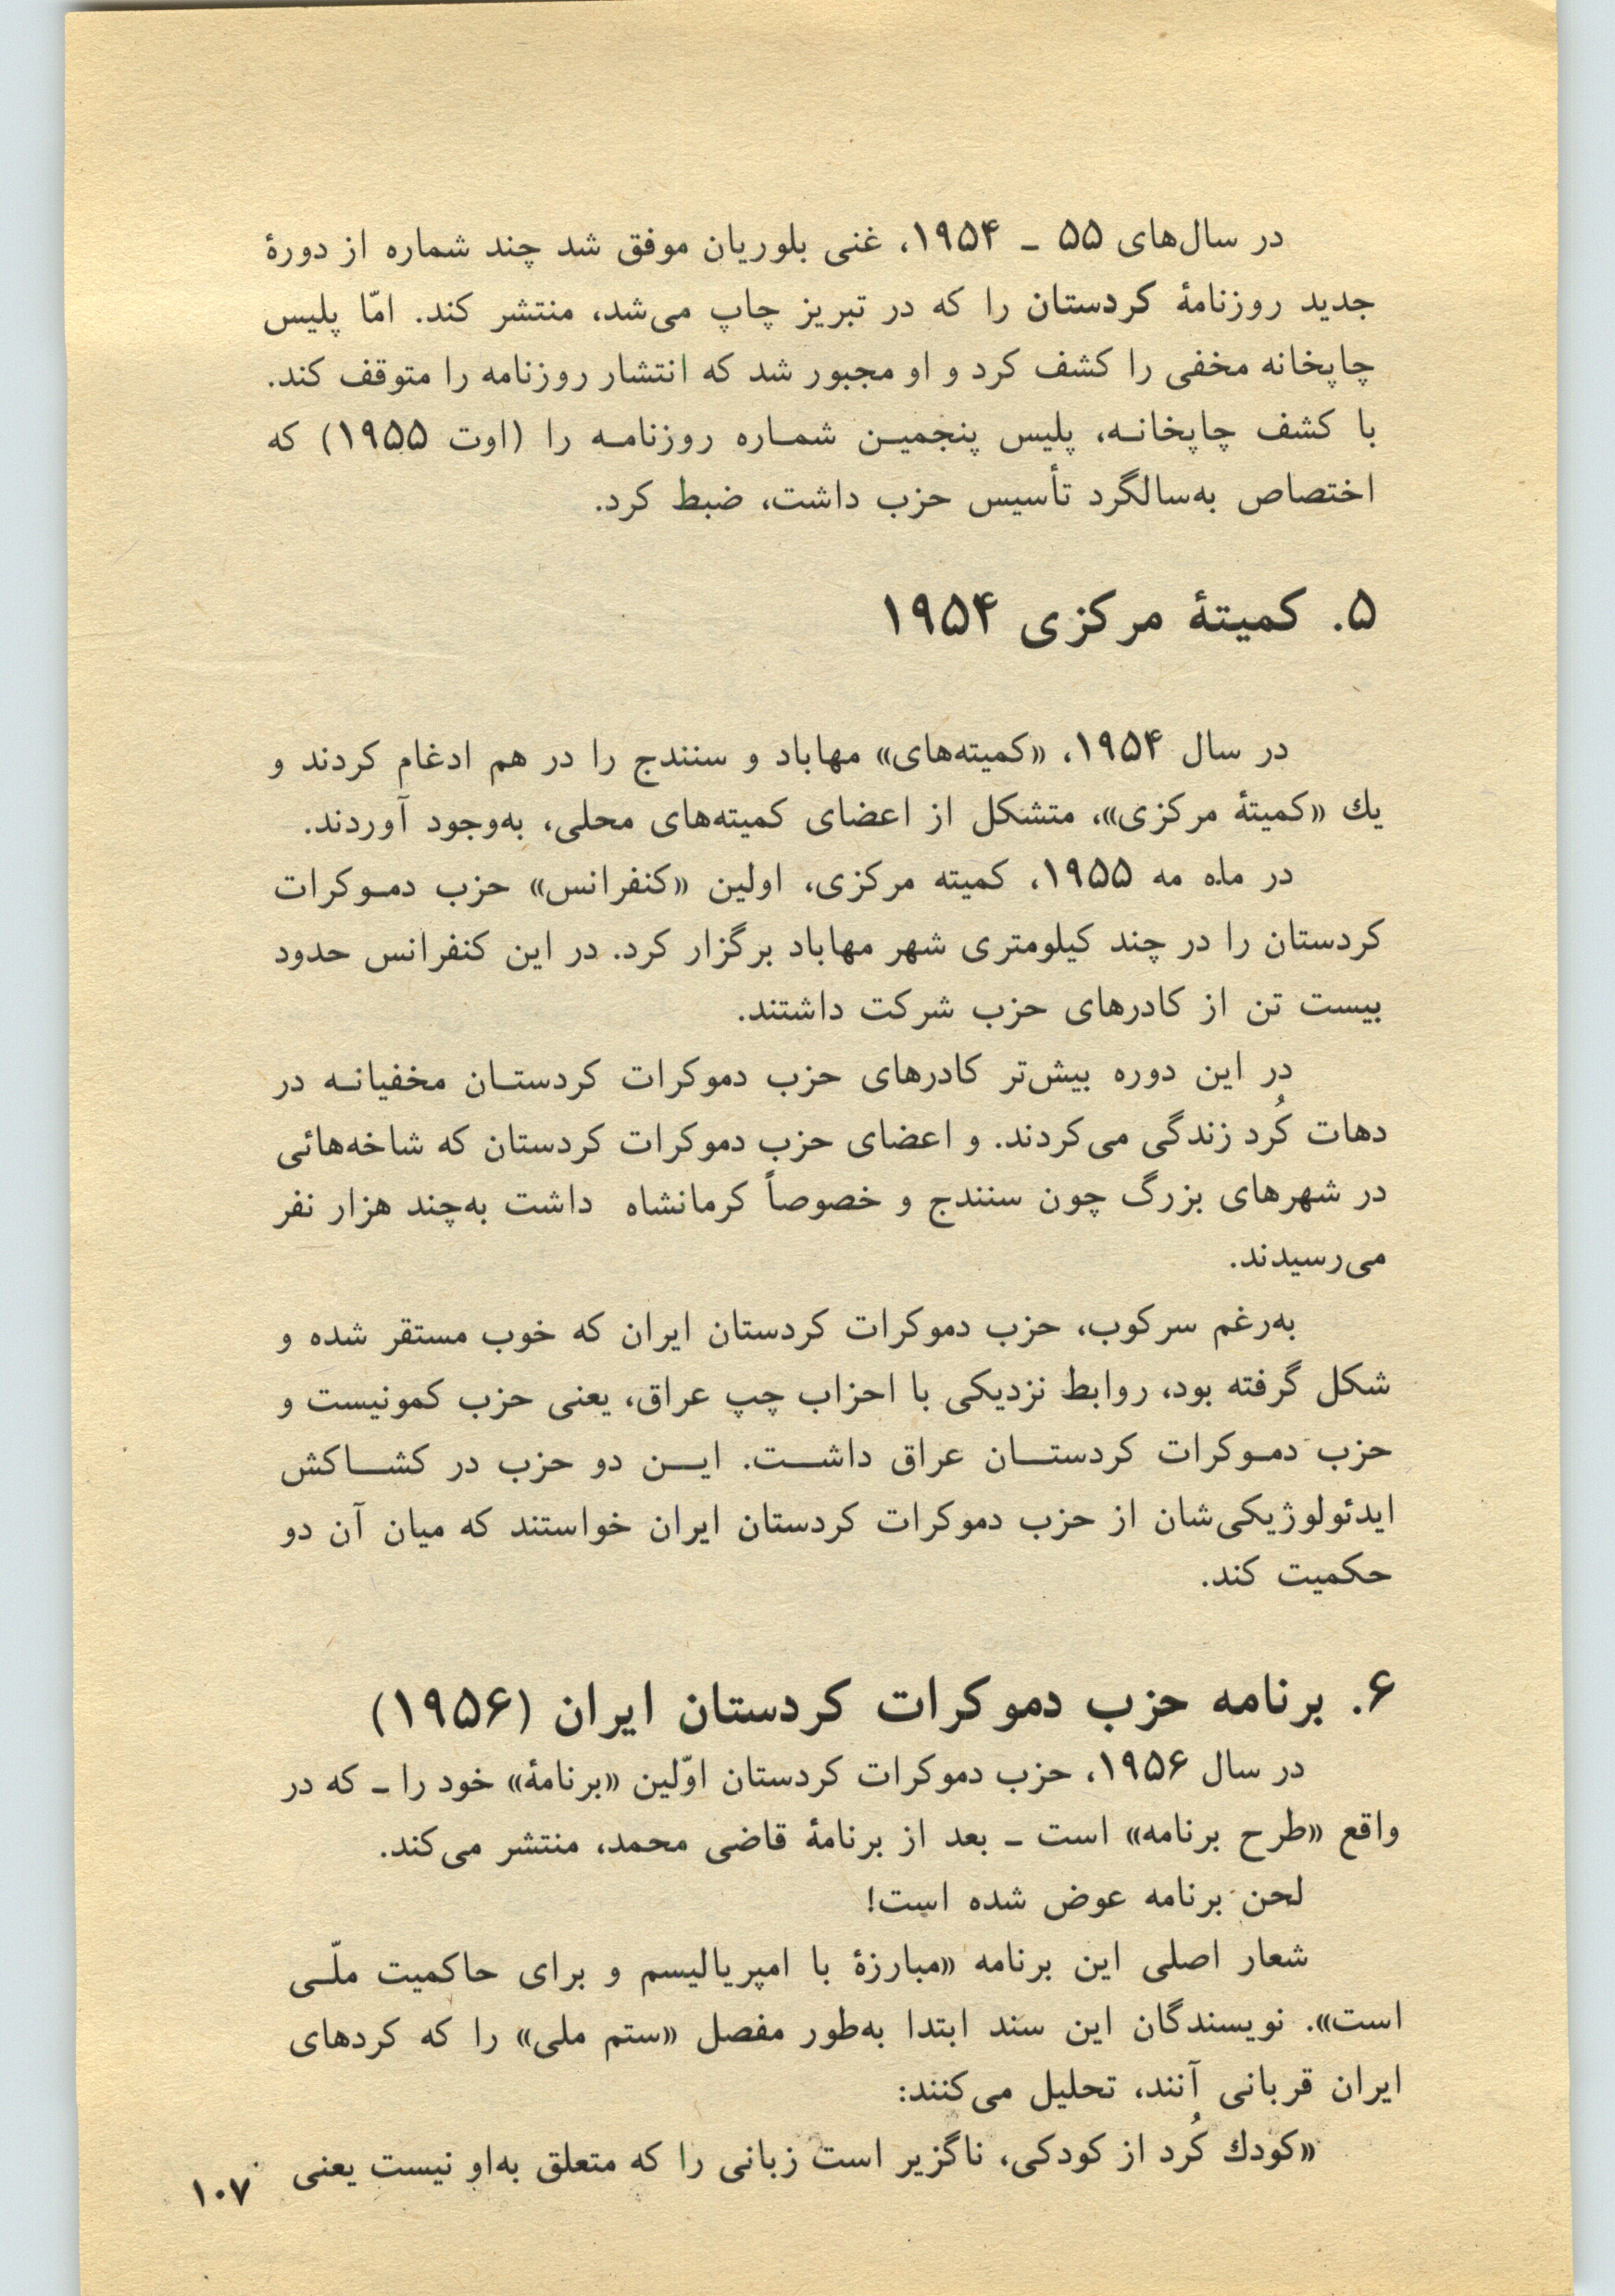 در سال‌های ۵۵ ـ ۱۹۵۴، غنی بلوریان موفق شد چند شماره از دورهٔ
جدید روزنامهٔ کردستان را که در تبریز چاپ می‌شد، منتشر کند. امّا پلیس
چاپخانه مخفی را کشف کرد و او مجبور شد که انتشار روزنامه را متوقف کند.
با کشف چاپخانـه، پلیس پنجمیـن شمـاره روزنامـه را (اوت ۱۹۵۵) که
اختصاص به‌سالگرد تأسیس حزب داشت، ضبط کرد.
۵. کمیتهٔ مرکزی ۱۹۵۴
در سال ۱۹۵۴، «کمیته‌های» مهاباد و سنندج را در هم ادغام کردند و
یك «کمیتهٔ مرکزی»، متشکل از اعضای کمیته‌های محلی، به‌وجود آوردند.
در ماه مه ۱۹۵۵، کمیته مرکزی، اولین «کنفرانس» حزب دمـوکرات
کردستان را در چند کیلومتری شهر مهاباد برگزار کرد. در این کنفرانس حدود
بیست تن از کادرهای حزب شرکت داشتند.
در این دوره بیش‌تر کادرهای حزب دموکرات کردستـان مخفیانـه در
دهات کُرد زندگی می‌کردند. و اعضای حزب دموکرات کردستان که شاخه‌هائی
در شهرهای بزرگ چون سنندج و خصوصاً کرمانشاه داشت به‌چند هزار نفر
می‌رسیدند.
به‌رغم سرکوب، حزب دموکرات کردستان ایران که خوب مستقر شده و
شکل گرفته بود، روابط نزدیکی با احزاب چپ عراق، یعنی حزب کمونیست و
حزب دمـوکرات کردستـــان عراق داشـــت. ایـــن دو حزب در کشـــاکش
ایدئولوژیکی‌شان از حزب دموکرات کردستان ایران خواستند که میان آن دو
حکمیت کند.
۶. برنامه حزب دموکرات کردستان ایران (۱۹۵۶)
در سال ۱۹۵۶، حزب دموکرات کردستان اوّلین «برنامهٔ» خود را ـ که در
واقع «طرح برنامه» است ـ بعد از برنامهٔ قاضی محمد، منتشر می‌کند.
لحن برنامه عوض شده است!
شعار اصلی این برنامه «مبارزهٔ با امپریالیسم و برای حاکمیت ملّـی
است». نویسندگان این سند ابتدا به‌طور مفصل «ستم ملی» را که کردهای
ایران قربانی آنند، تحلیل می‌کنند:
«کودك کُرد از کودکی، ناگزیر است زبانی را که متعلق به‌او نیست یعنی
۱۰۷